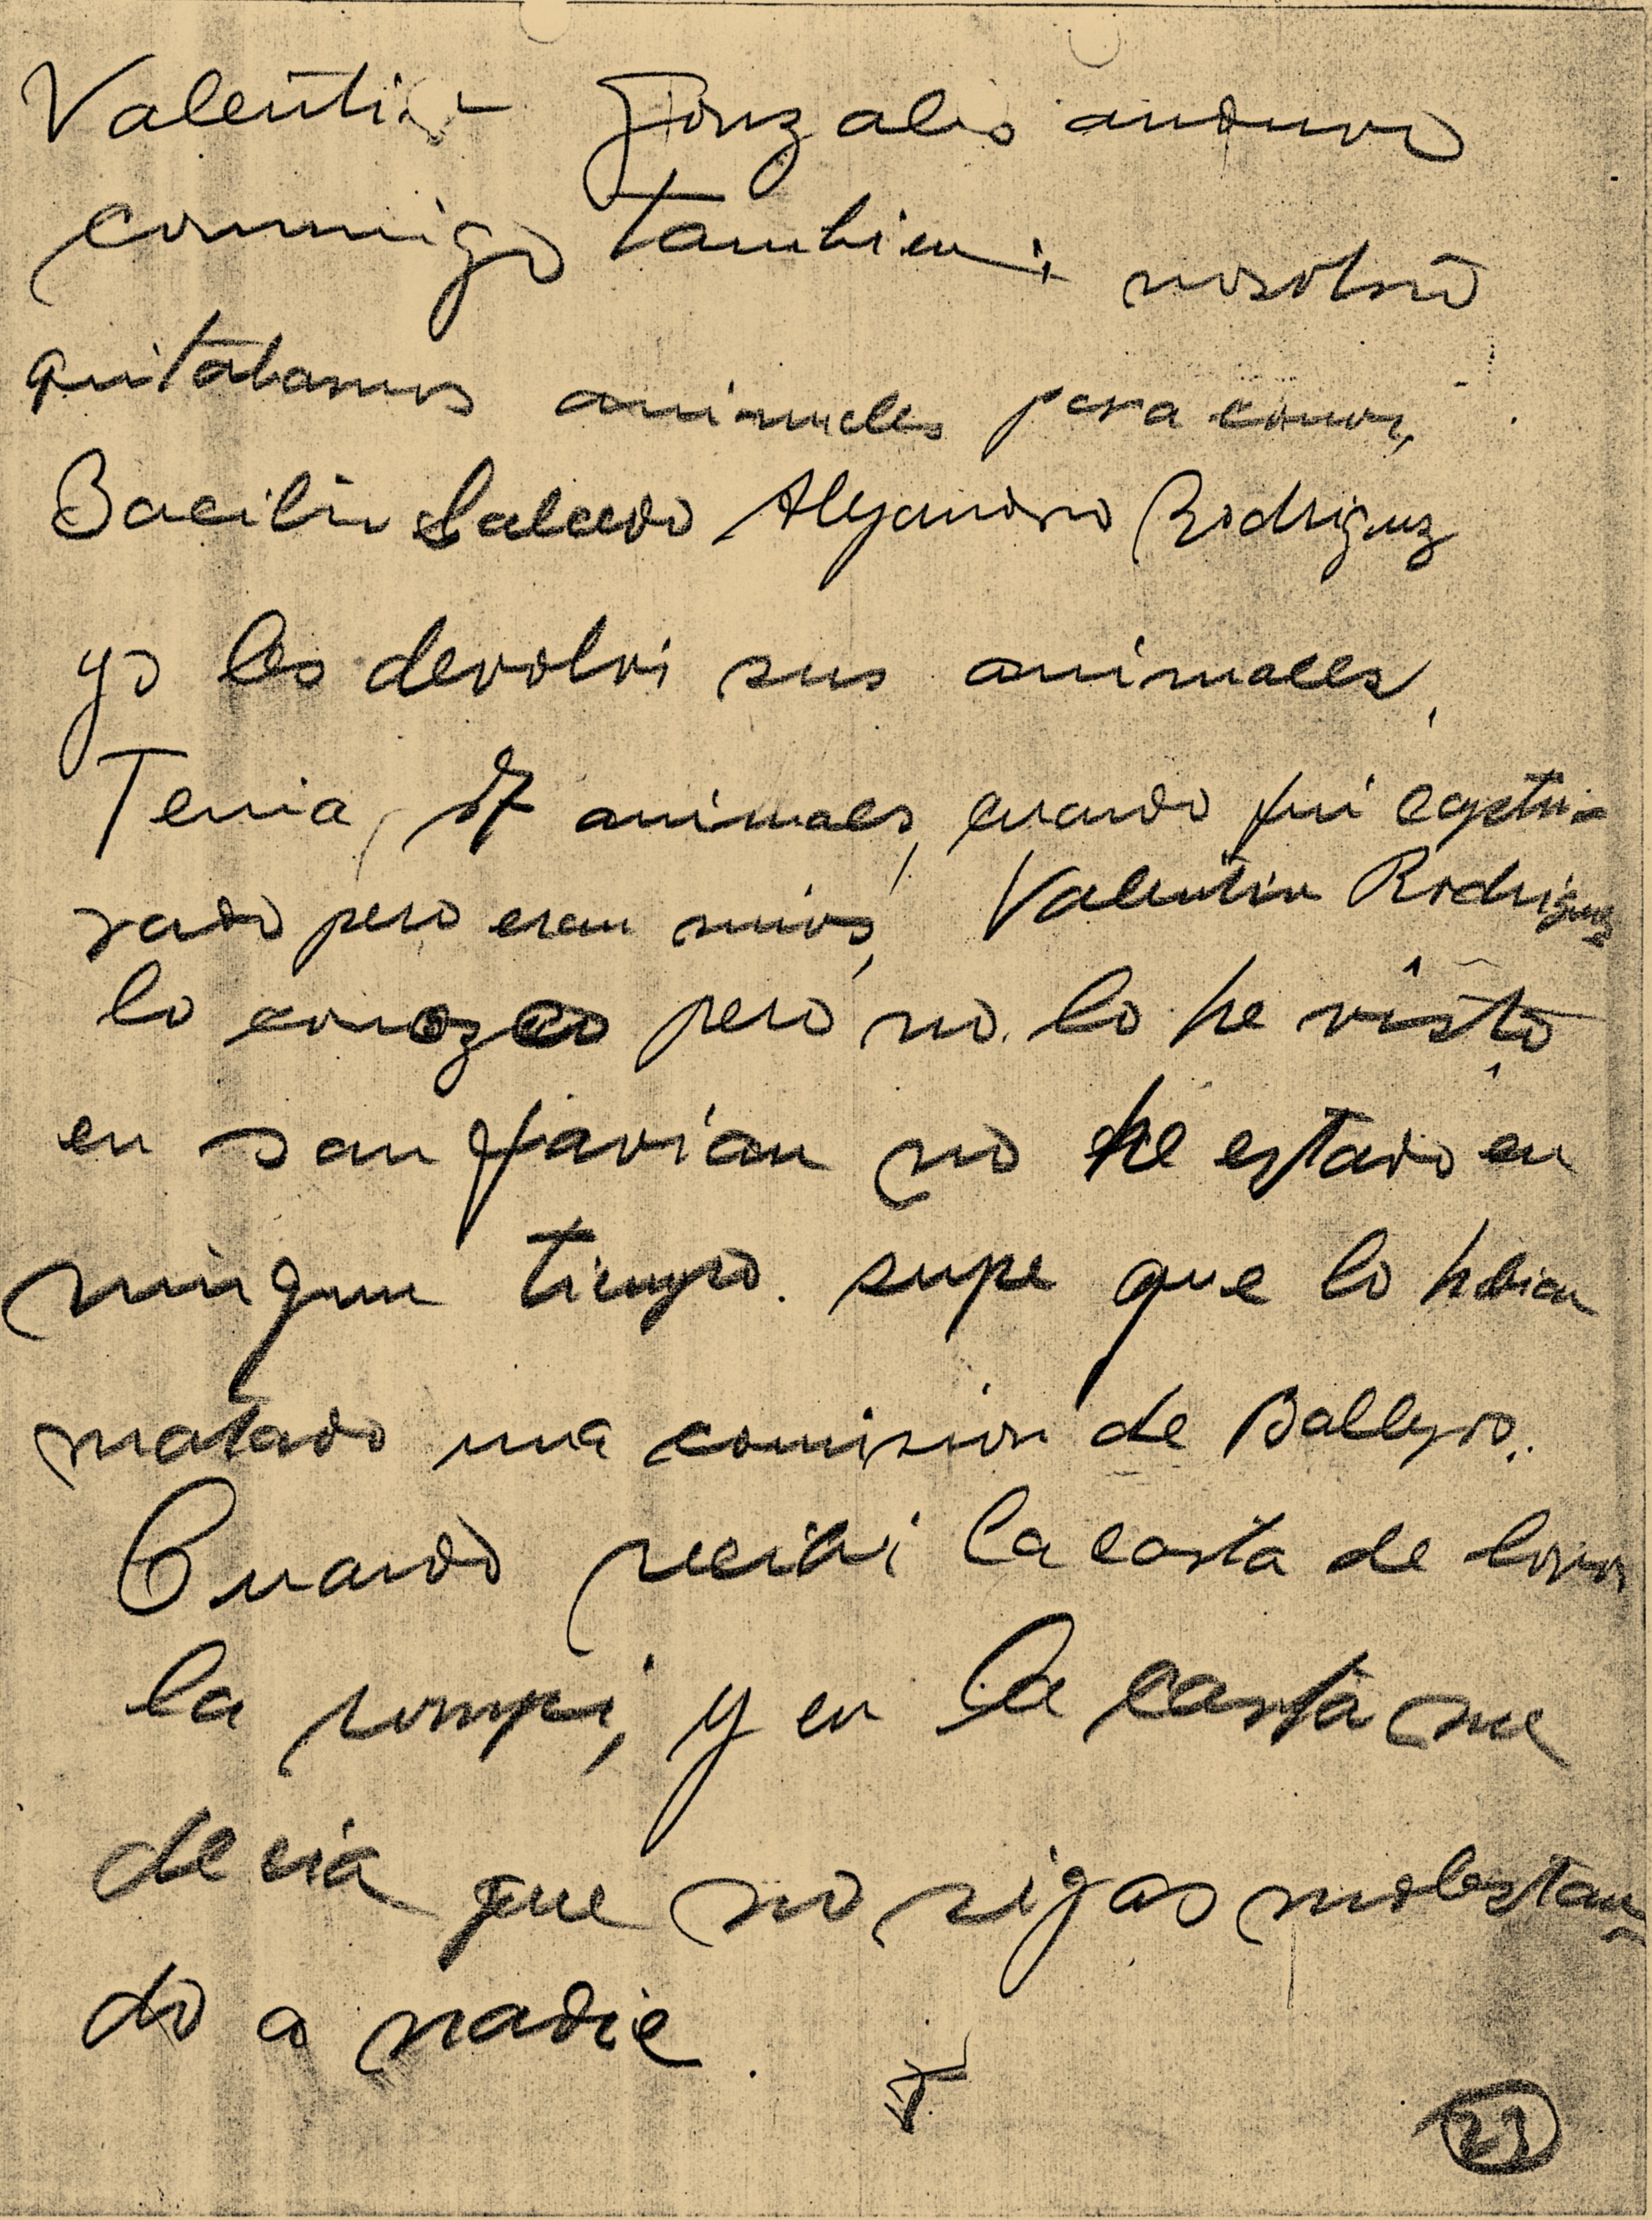 Valentin Gonzales anduvo
conmigo tambien; nosotros
quitabamos animales para comer,
Bacilio Salcedo Alejandro Rodriguez
yo les devolvi sus animales,
Tenia animales, cuando fui captu-
rado pero eran mios, Valentin Rodriguez
lo conozco pero no lo he visto
en san no he estado en
ningun tiempo. supe que lo habian
matado una comision de
Cuando recibi la carta de
la rompi, y en la carta me
decia que no sigas molestan-
do a nadie.
23